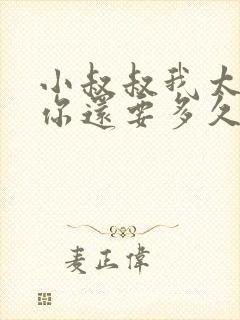 小叔叔我太
你還要多久
麦正偉